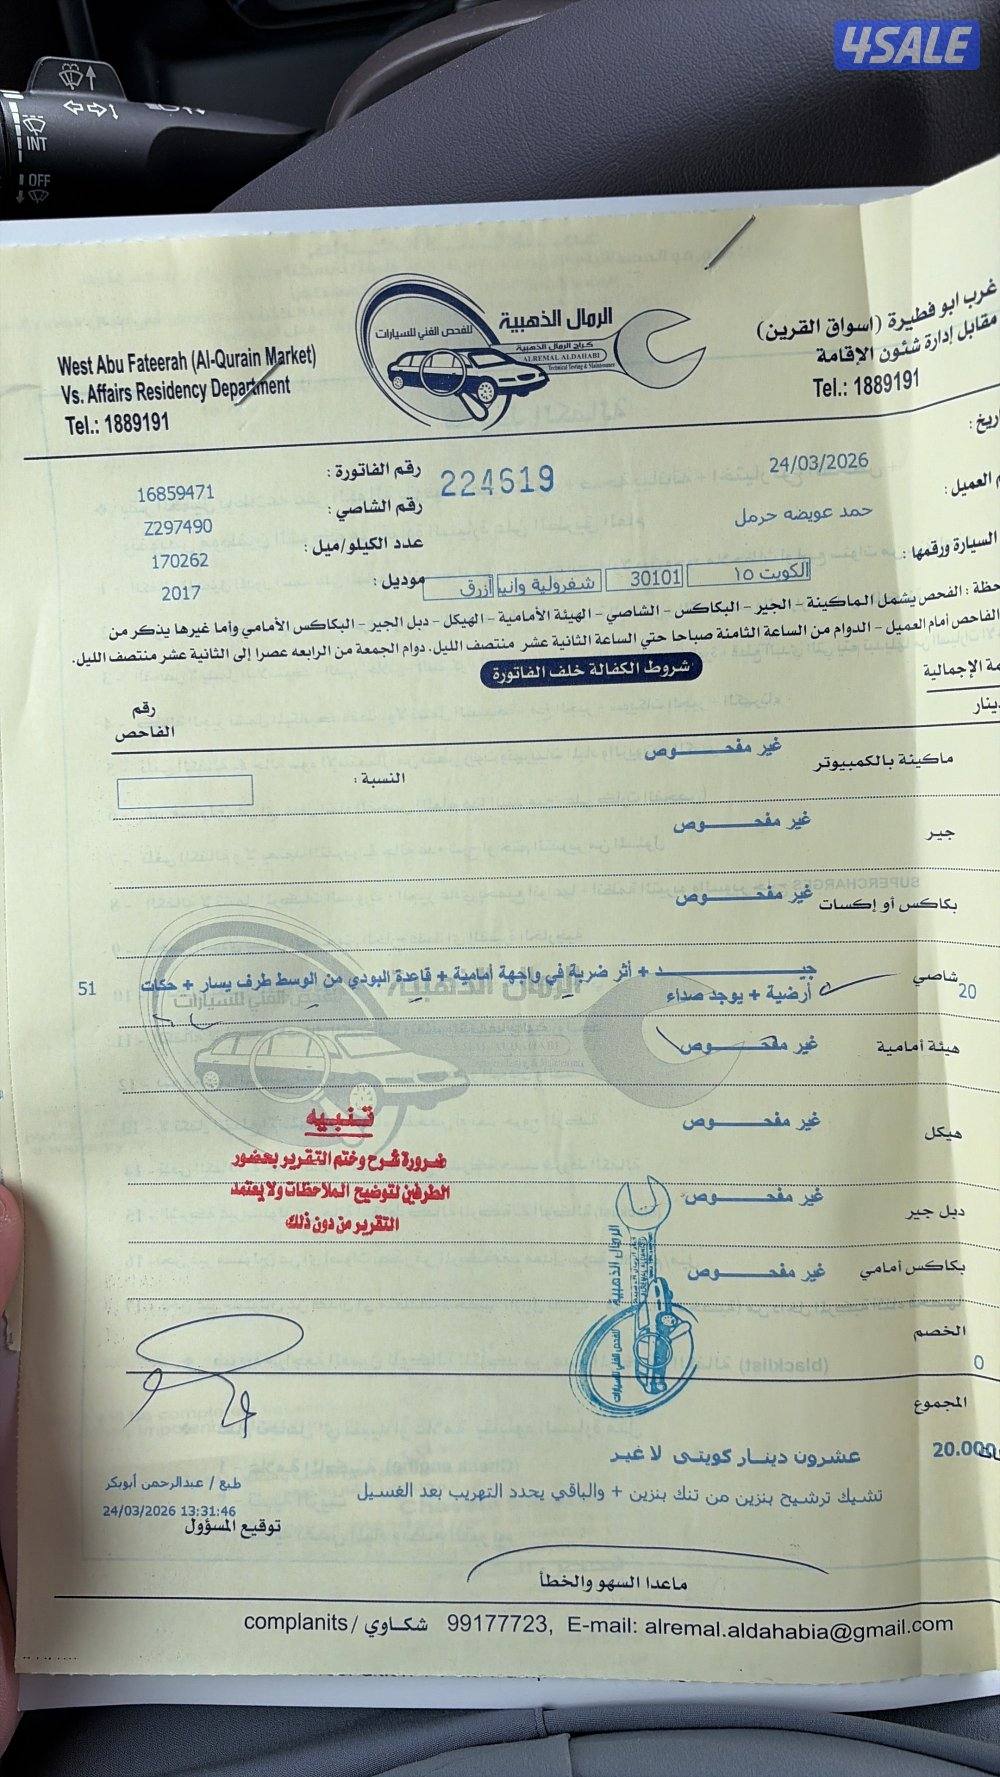 4SALE
INT
OFF
غرب ابو فطيرة (اسواق القرين)
مقابل إدارة شئون الإقامة
Tel.: 1889191
الرمال الذهبية
للفحص الفني للسيارات
كراج الرمال الذهبية
ALREMAL ALDAHABI
Technical Testing & Maintenance
West Abu Fateerah (Al-Qurain Market)
Vs. Affairs Residency Department
Tel.: 1889191
24/03/2026
224619
رقم الفاتورة : 16859471
العميل : حمد عويضه حرمل
رقم الشاصي : Z297490
السيارة ورقمها : الكويت ١٥ 30101 شفرولية وانيت أزرق
عدد الكيلو/ميل : 170262
موديل : 2017
الفحص يشمل الماكينة - الجير - البكاكس - الشاصي - الهيئة الأمامية - الهيكل - دبل الجير - البكاكس الأمامي وأما غيرها يذكر من
الفاحص أمام العميل - الدوام من الساعة الثامنة صباحا حتي الساعة الثانية عشر منتصف الليل. دوام الجمعة من الرابعه عصرا إلى الثانية عشر منتصف الليل.
شروط الكفالة خلف الفاتورة
الإجمالية
رقم
الفاحص
ماكينة بالكمبيوتر غير مفحـــوص
النسبة :
جير غير مفحـــوص
بكاكس أو إكسات غير مفحـــوص
20 شاصي جيـــد + أثر ضربة في واجهة أمامية + قاعدة البودي من الوسط طرف يسار + حكات 51
أرضية + يوجد صداء
هيئة أمامية غير مفحـــوص
هيكل غير مفحـــوص
دبل جير غير مفحـــوص
بكاكس أمامي غير مفحـــوص
تنبيه
ضرورة شرح وختم التقرير بحضور
الطرفين لتوضيح الملاحظات ولا يعتمد
التقرير من دون ذلك
الرمال الذهبية
للفحص الفني للسيارات
الخصم 0
المجموع
20.000 عشرون دينار كويتي لا غير
تشيك ترشيح بنزين من تنك بنزين + والباقي يحدد التهريب بعد الغسيل
طبع / عبدالرحمن أبوبكر
24/03/2026 13:31:46
توقيع المسؤول
ماعدا السهو والخطأ
complanits/ شكاوي 99177723, E-mail: alremal.aldahabia@gmail.com